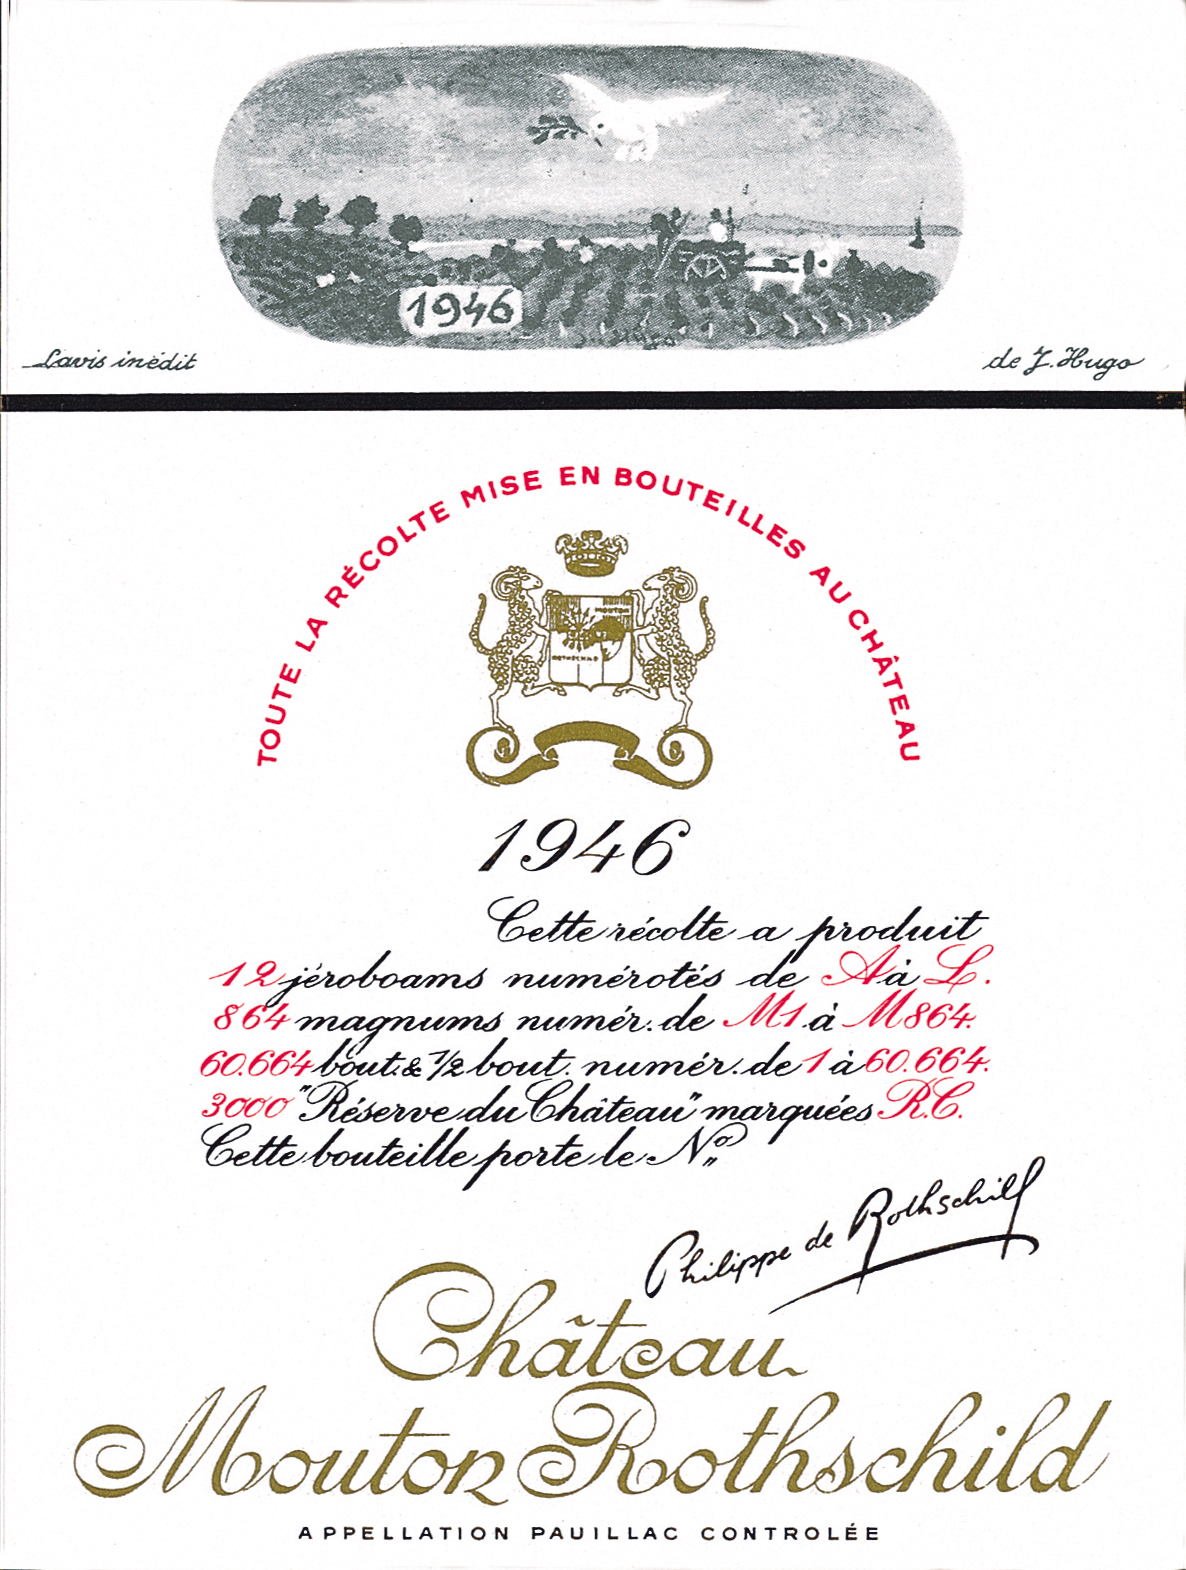 1946
Lavis inédit
de J. Hugo
TOUTE LA RÉCOLTE MISE EN BOUTEILLES AU CHÂTEAU
MOUTON
ROTHSCHILD
1946
Cette récolte a produit
12 jéroboams numérotés de A à L.
864 magnums numér. de M1 à M864.
60.664 bout. & 1/2 bout. numér. de 1 à 60.664.
3000 "Réserve du Château" marquées R.C.
Cette bouteille porte le Nº
Philippe de Rothschild
Château
Mouton Rothschild
APPELLATION PAUILLAC CONTROLÉE